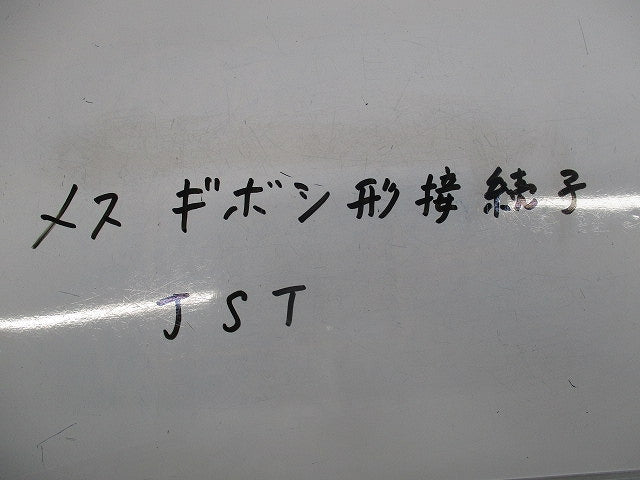 メス ギボシ形接続子
JST